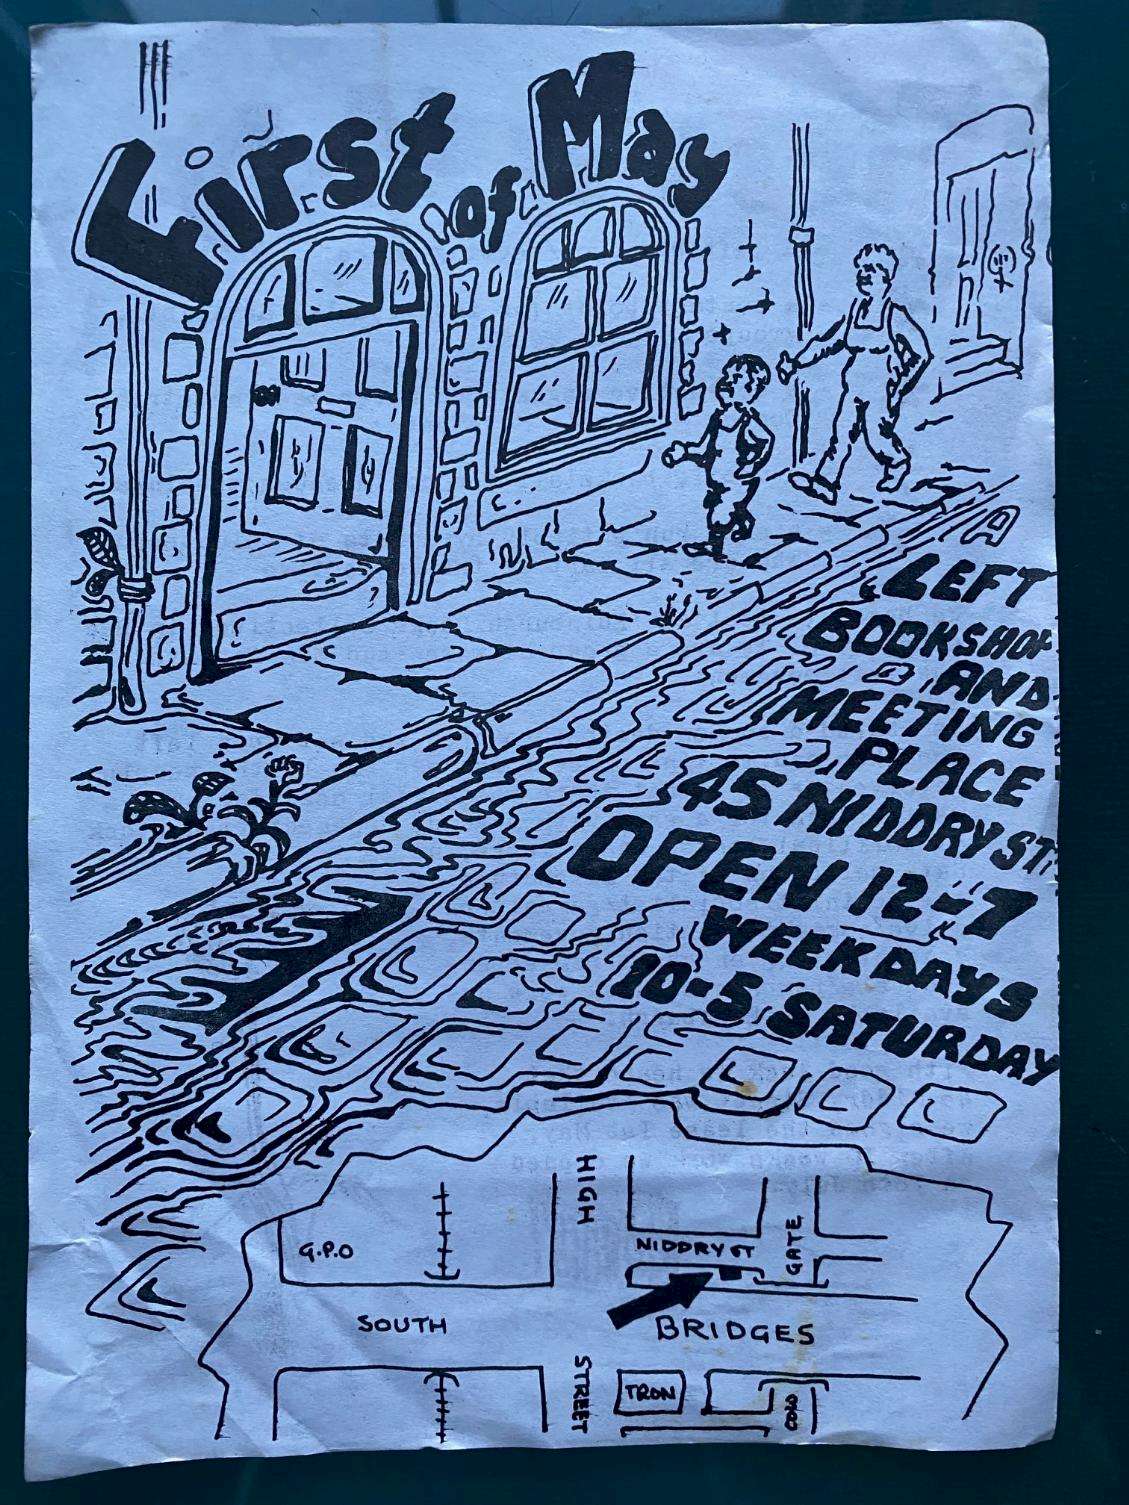 First of May
A
LEFT
BOOKSHOP
AND
MEETING
PLACE
45 NIDDRY ST.
OPEN 12-7
WEEKDAYS
10-5 SATURDAY
HIGH
G.P.O
NIDDRY ST
GATE
SOUTH
BRIDGES
STREET
TRON
COW